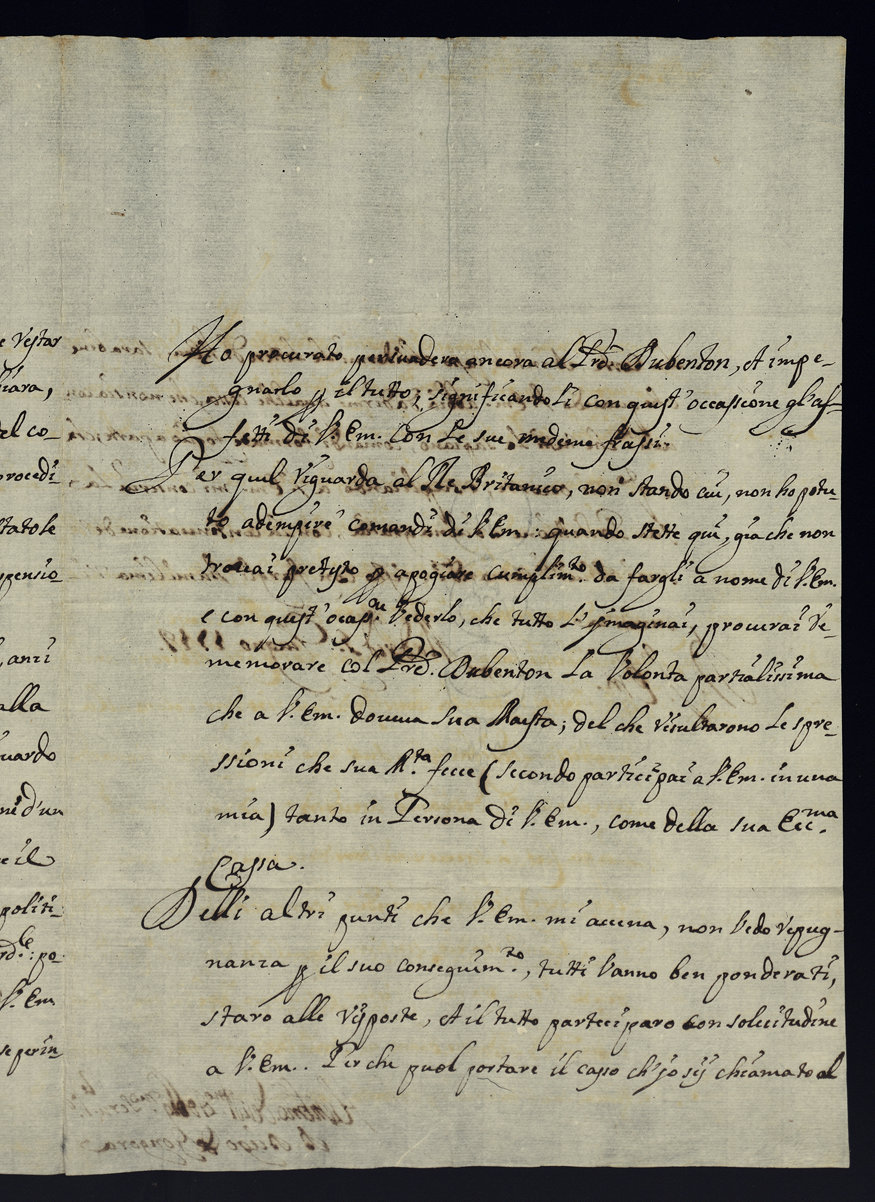 e vestar
hiara,
del co-
procedi
statole
spensio
, anzi
alla
guardo
ni d'un
e il
politi-
rd.le: po-
V. Em.
se perin-
Ho procurato persuadera ancora al Prd. Dubenton, et impe-
gnarlo p il tutto, significandoli con quest'occassione gl'af-
fetti di V. Em. con le sue medeme frassi.
Per quel riguarda al Re Britanico, non stando cui, non ho potu-
to adimpire comandi di V. Em.: quando stette qui, gia che non
trovai pretesto p apogiare cumplim.to da fargli a nome di V. Em.
e con quest' ocass.ne vederlo, che tutto l'imaginai, procurai re-
memorare col Prd. Dubenton la volonta partialissima
che a V. Em. doveva sua Maesta; del che risultarono le spre-
ssioni che sua M.ta fece (secondo participai a V. Em. in una
mia) tanto in Persona di V. Em., come della sua Ecc.ma
Cassa.
Delli altri punti che V. Em. mi accena, non vedo repug-
nanza p il suo conseguim.to, tutti vanno ben ponderati,
staro alle risposte, et il tutto parteciparo con solecitudine
a V. Em.. Perche puol portare il casso ch'io sij chiamato al